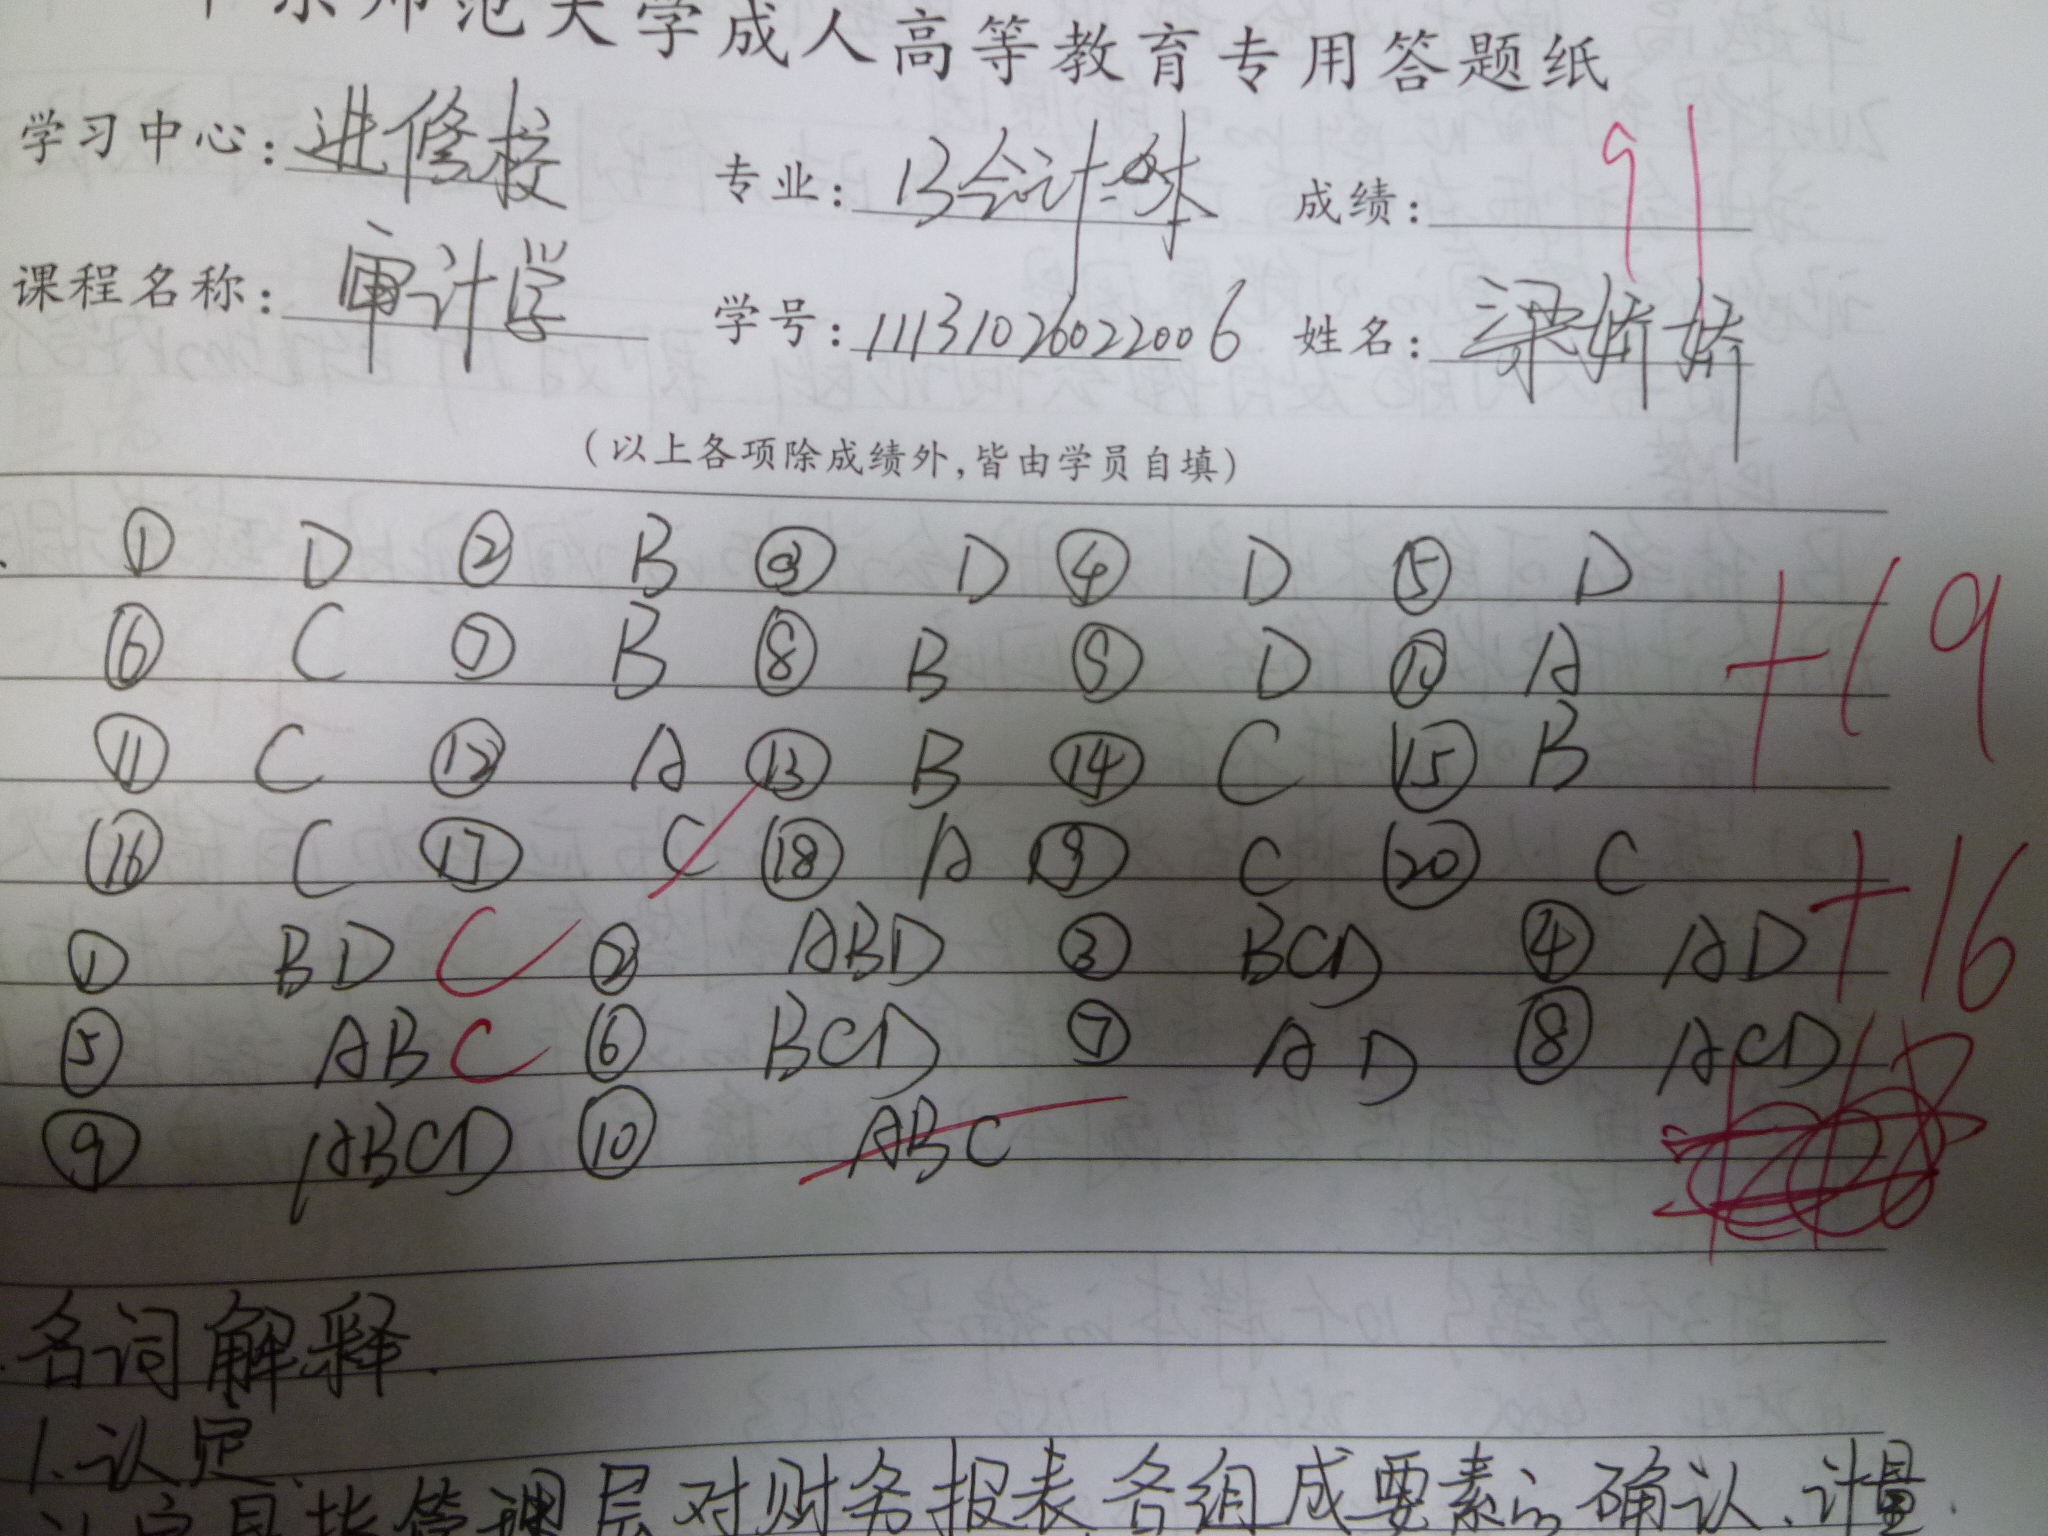 师范大学成人高等教育专用答题纸
学习中心：进修校 专业：13会计 成绩：91
课程名称：审计学 学号：11131026022006 姓名：梁娇娇
（以上各项除成绩外，皆由学员自填）
① D ② B ③ D ④ D ⑤ D
⑥ C ⑦ B ⑧ B ⑨ D ⑩ A +19
⑪ C ⑫ A ⑬ B ⑭ C ⑮ B
⑯ C ⑰ C ⑱ A ⑲ C ⑳ C
① BD C ② ABD ③ BCD ④ AD +16
⑤ AB C ⑥ BCD ⑦ AD ⑧ ACD
⑨ ABCD ⑩ ABC
名词解释.
1.认定
管理层对财务报表各组成要素的确认、计量.